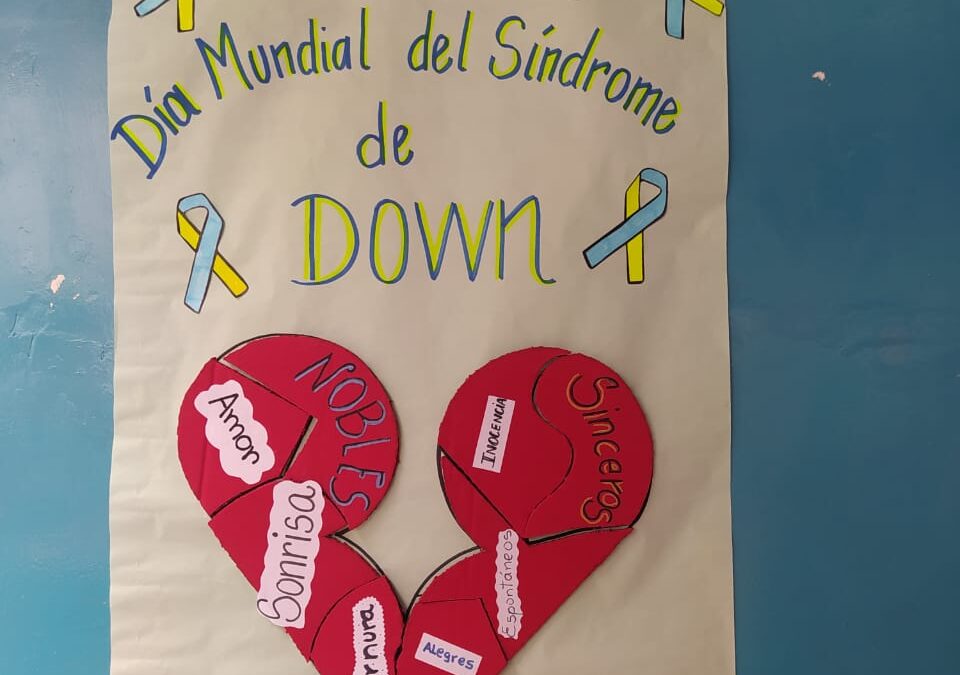 Día Mundial del Síndrome
de
DOWN
NOBLES
Amor
Sonrisa
INOCENCIA
Sinceros
Espontáneos
Alegres